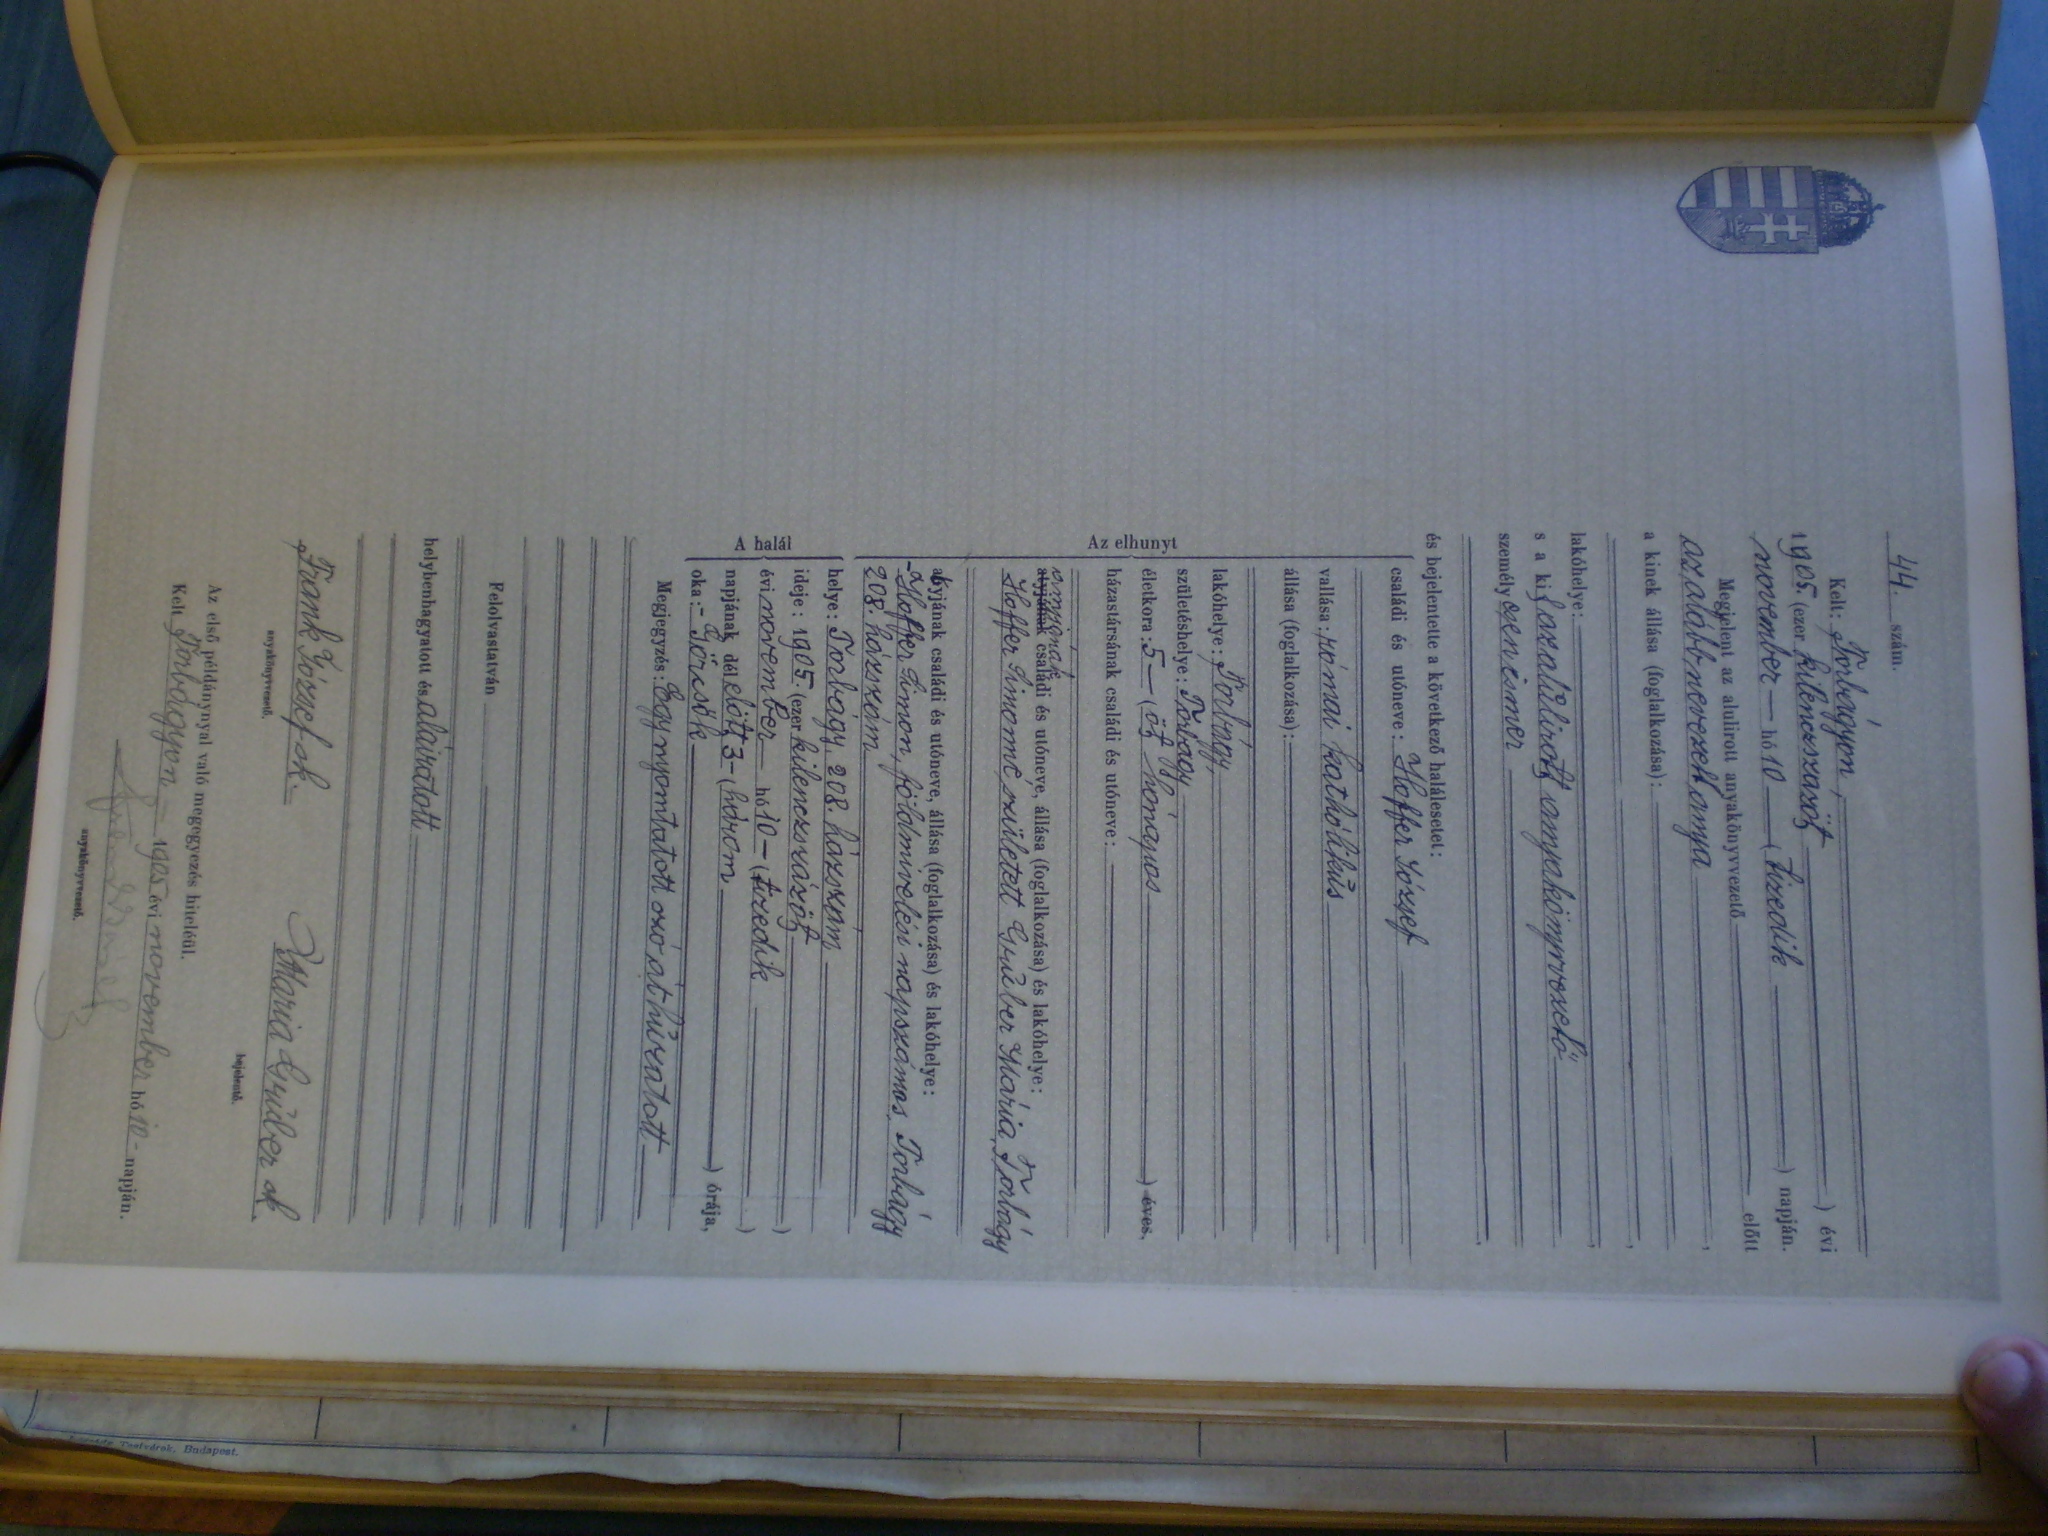 44. szám.
Kelt: Torbágyon,
1905. (ezer kilenczszázöt ) évi
november — hó 10 — (tizedik ) napján.
Megjelent az alulirott anyakönyvvezető előtt
az alább nevezett anya,
a kinek állása (foglalkozása):
lakóhelye:
s a kit az alúlirott anyakönyvvezető
személyesen ismer
és bejelentette a következő halálesetet:
Az elhunyt
családi és utóneve: Hoffer József
vallása: római katholikus
állása (foglalkozása):
lakóhelye: Torbágy,
születéshelye: Torbágy
életkora: 5 — (öt hónapos ) éves,
házastársának családi és utóneve:
annyának
atyjának családi és utóneve, állása (foglalkozása) és lakóhelye:
Hoffer Simonné született Gruber Mária, Torbágy
atyjának családi és utóneve, állása (foglalkozása) és lakóhelye:
Hoffer Simon, földmívelési napszámos, Torbágy
208. házszám
A halál
helye: Torbágy, 208. házszám
ideje: 1905. (ezer kilenczszázöt )
évi november — hó 10 — (tizedik )
napjának délelőtt 3 — (három ) órája,
oka: - Görcsök
Megjegyzés: Egy nyomtatott szó áthúzatott
Felolvastatván
helybenhagyatott és aláiratott
Frank József sk. Maria Gruber sk
anyakönyvvezető. bejelentő.
Az első példánynyal való megegyezés hiteléül.
Kelt Torbágyon — 1905 évi november hó 10 - napján.
anyakönyvvezető.
Budapest.